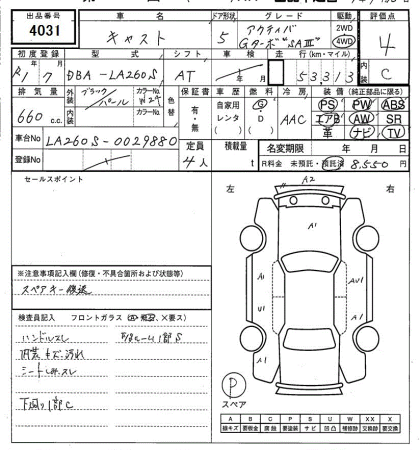 出品番号 車名 ドア形状 グレード 駆動 評価点
4031 キャスト 5 アクティバ Gターボ"SAⅢ" 2WD 4WD 4
初度登録 型式 シフト 車検 走行(km・マイル) 内装
R1/7 DBA-LA260S AT 年 月 53,313 C
排気量 外装 ブラックパール カラーNo. W29 色替 保証書 車歴 燃料 冷房 装備(純正部品に限る)
660 c.c. 内装 カラーNo. 有・無 自家用 レンタ G D AAC PS PW ABS
エアB AW SR
革 ナビ TV
車台No LA260S-0029880 定員 積載量 名変期限 年 月 日
登録No 4人 t R料金 未預託・預託済 8,550円
セールスポイント
左 右
A2
A1
A1
A1
U1
A1
A1
※注意事項記入欄(修復・不具合箇所および状態等)
スペアキー後送
検査員記入 フロントガラス
ハンドルスレ
内装キズ、汚れ
シートしみ、スレ
下回り1部C
P
スペア
A B C P S U W X XX
線キズ 要板金 腐蝕 要塗装 サビ 凹凸 補修跡 要交換